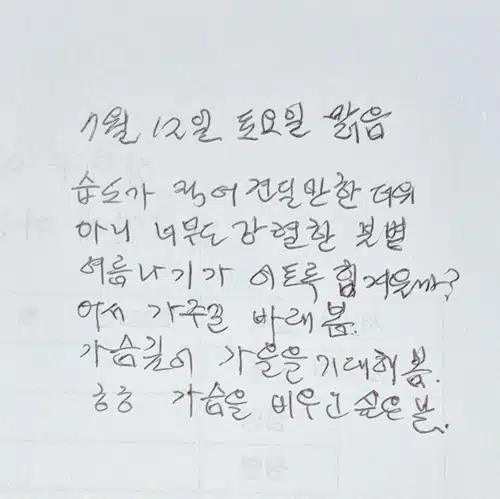 7월 12일 토요일 맑음
습도가 적어 견딜만한 더위
아니 너무도 강렬한 불볕
여름나기가 이토록 힘겨울까?
어서 가주길 바래 봄.
가슴깊이 가을을 기대해 봄.
ㅎㅎ 가슴을 비우고 싶은 날.